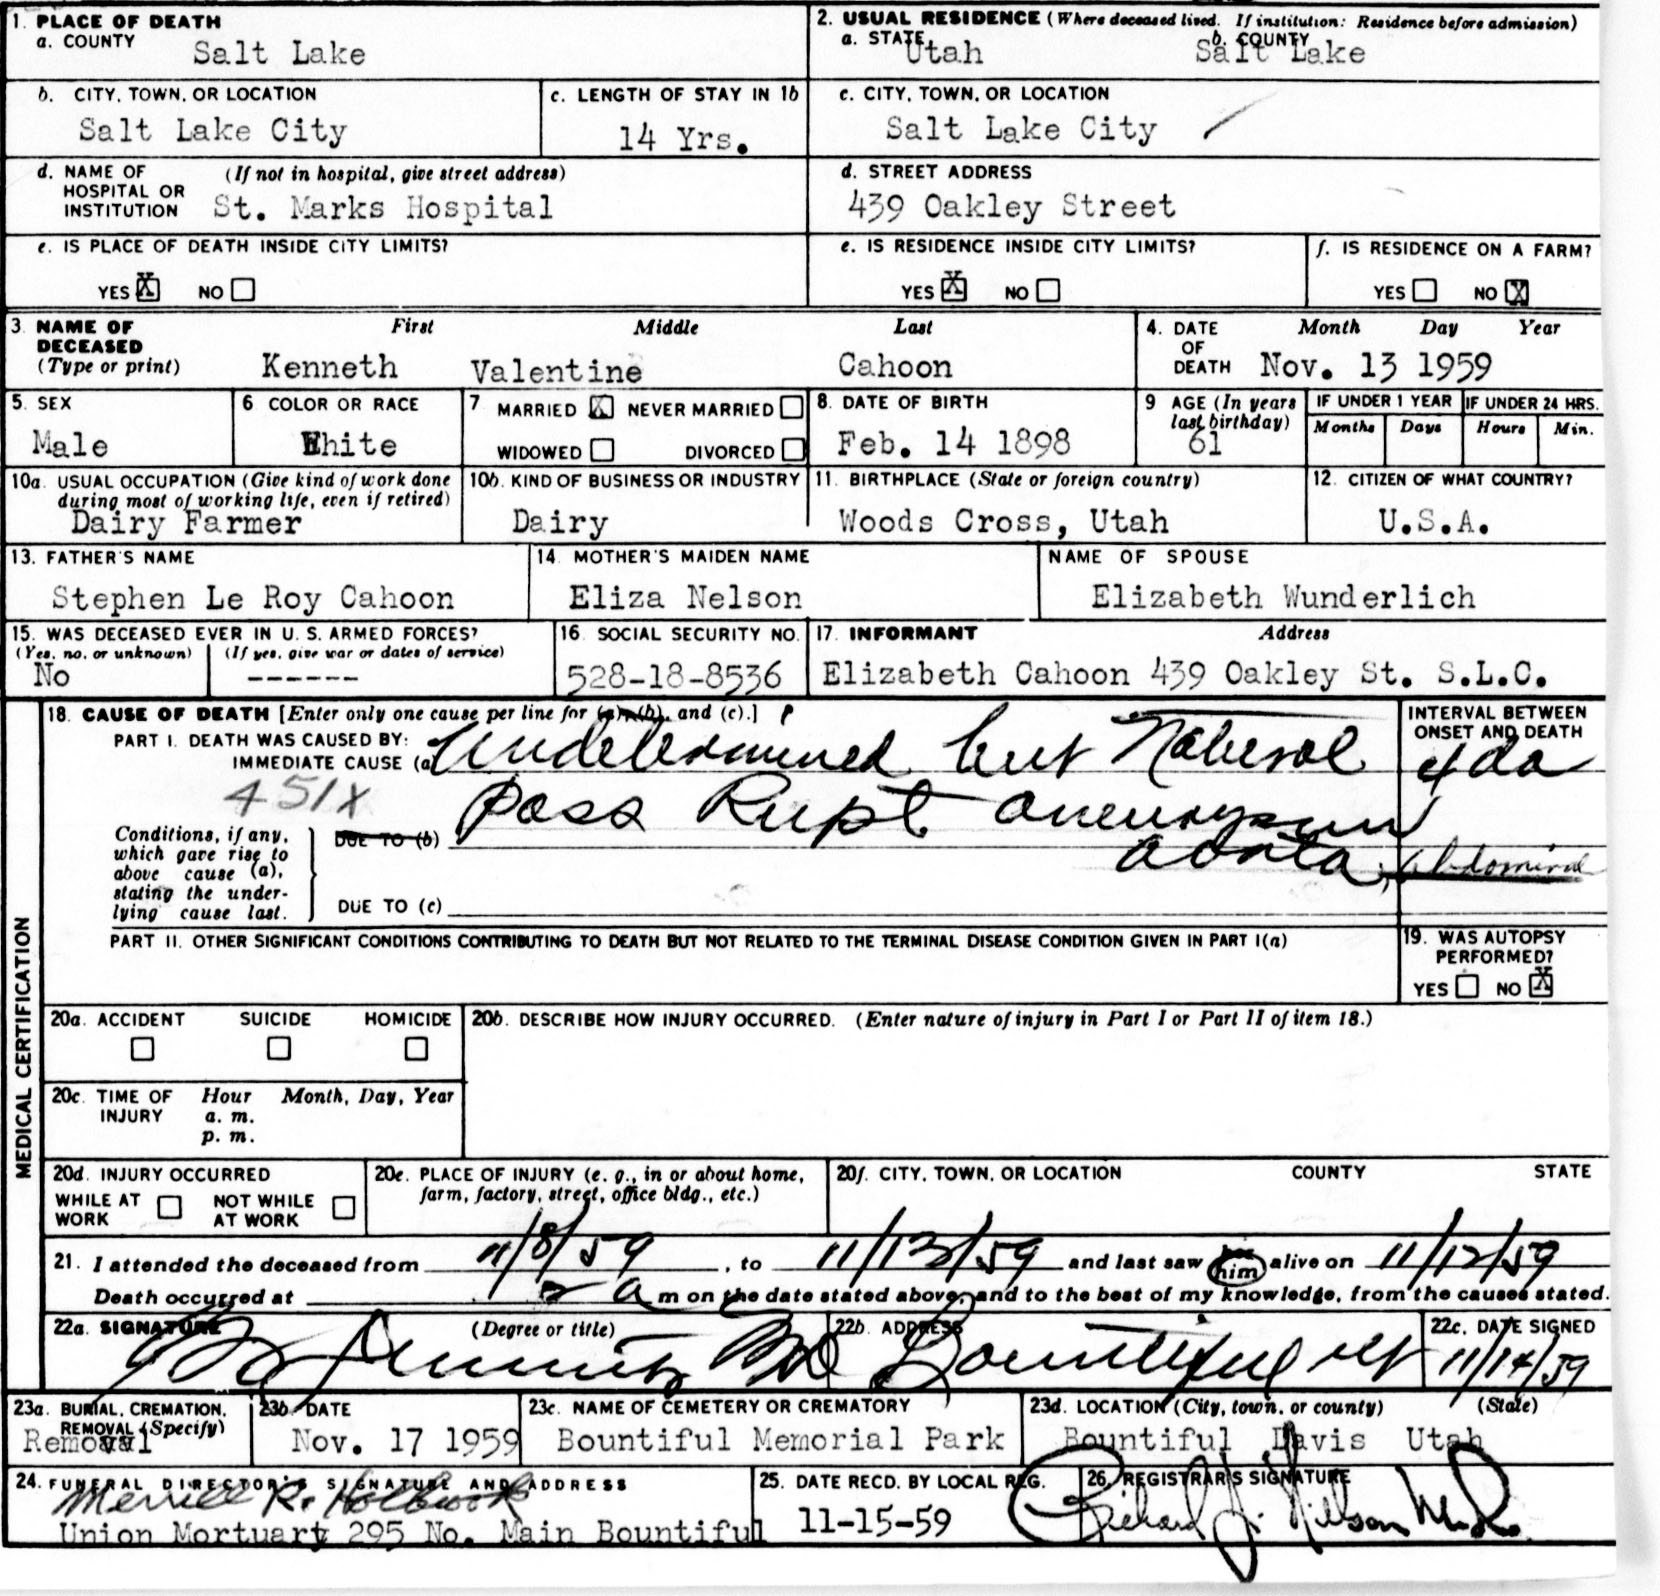 1. PLACE OF DEATH
a. COUNTY Salt Lake
2. USUAL RESIDENCE (Where deceased lived. If institution: Residence before admission)
a. STATE Utah b. COUNTY Salt Lake
b. CITY, TOWN, OR LOCATION Salt Lake City
c. LENGTH OF STAY IN 1b 14 Yrs.
c. CITY, TOWN, OR LOCATION Salt Lake City
d. NAME OF HOSPITAL OR INSTITUTION (If not in hospital, give street address) St. Marks Hospital
d. STREET ADDRESS 439 Oakley Street
e. IS PLACE OF DEATH INSIDE CITY LIMITS?
YES X NO
e. IS RESIDENCE INSIDE CITY LIMITS?
YES X NO
f. IS RESIDENCE ON A FARM?
YES NO X
3. NAME OF DECEASED (Type or print) First Middle Last
Kenneth Valentine Cahoon
4. DATE OF DEATH Month Day Year
Nov. 13 1959
5. SEX Male
6 COLOR OR RACE White
7 MARRIED X NEVER MARRIED
WIDOWED DIVORCED
8. DATE OF BIRTH Feb. 14 1898
9 AGE (In years last birthday) 61
IF UNDER 1 YEAR Months Days
IF UNDER 24 HRS. Hours Min.
10a. USUAL OCCUPATION (Give kind of work done during most of working life, even if retired) Dairy Farmer
10b. KIND OF BUSINESS OR INDUSTRY Dairy
11. BIRTHPLACE (State or foreign country) Woods Cross, Utah
12. CITIZEN OF WHAT COUNTRY? U.S.A.
13. FATHER'S NAME Stephen Le Roy Cahoon
14 MOTHER'S MAIDEN NAME Eliza Nelson
NAME OF SPOUSE Elizabeth Wunderlich
15. WAS DECEASED EVER IN U.S. ARMED FORCES?
(Yes, no, or unknown) (If yes, give war or dates of service)
No ------
16. SOCIAL SECURITY NO. 528-18-8536
17. INFORMANT Address
Elizabeth Cahoon 439 Oakley St. S.L.C.
MEDICAL CERTIFICATION
18. CAUSE OF DEATH [Enter only one cause per line for (a), (b), and (c).]
PART I. DEATH WAS CAUSED BY:
IMMEDIATE CAUSE (a) Undetermined but Natural
INTERVAL BETWEEN ONSET AND DEATH 4 da
451X
Poss Rupt aneurysm
Conditions, if any, which gave rise to above cause (a), stating the underlying cause last.
DUE TO (b) aorta, abdominal
DUE TO (c)
PART II. OTHER SIGNIFICANT CONDITIONS CONTRIBUTING TO DEATH BUT NOT RELATED TO THE TERMINAL DISEASE CONDITION GIVEN IN PART I(a)
19. WAS AUTOPSY PERFORMED?
YES NO X
20a. ACCIDENT SUICIDE HOMICIDE
20b. DESCRIBE HOW INJURY OCCURRED. (Enter nature of injury in Part I or Part II of item 18.)
20c. TIME OF INJURY Hour Month, Day, Year
a. m.
p. m.
20d. INJURY OCCURRED
WHILE AT WORK NOT WHILE AT WORK
20e. PLACE OF INJURY (e. g., in or about home, farm, factory, street, office bldg., etc.)
20f. CITY, TOWN, OR LOCATION COUNTY STATE
21. I attended the deceased from 11/8/59, to 11/13/59 and last saw him alive on 11/12/59
Death occurred at 2 a m on the date stated above, and to the best of my knowledge, from the causes stated.
22a. SIGNATURE (Degree or title) MD
22b. ADDRESS Bountiful Ut
22c. DATE SIGNED 11/14/59
23a. BURIAL, CREMATION, REMOVAL (Specify) Removal
23b. DATE Nov. 17 1959
23c. NAME OF CEMETERY OR CREMATORY Bountiful Memorial Park
23d. LOCATION (City, town, or county) (State)
Bountiful Davis Utah
24. FUNERAL DIRECTOR'S SIGNATURE AND ADDRESS
Merrill R. Holbrook
Union Mortuary 295 No. Main Bountiful
25. DATE RECD. BY LOCAL REG. 11-15-59
26. REGISTRAR'S SIGNATURE
Richard J. Nilson M.D.